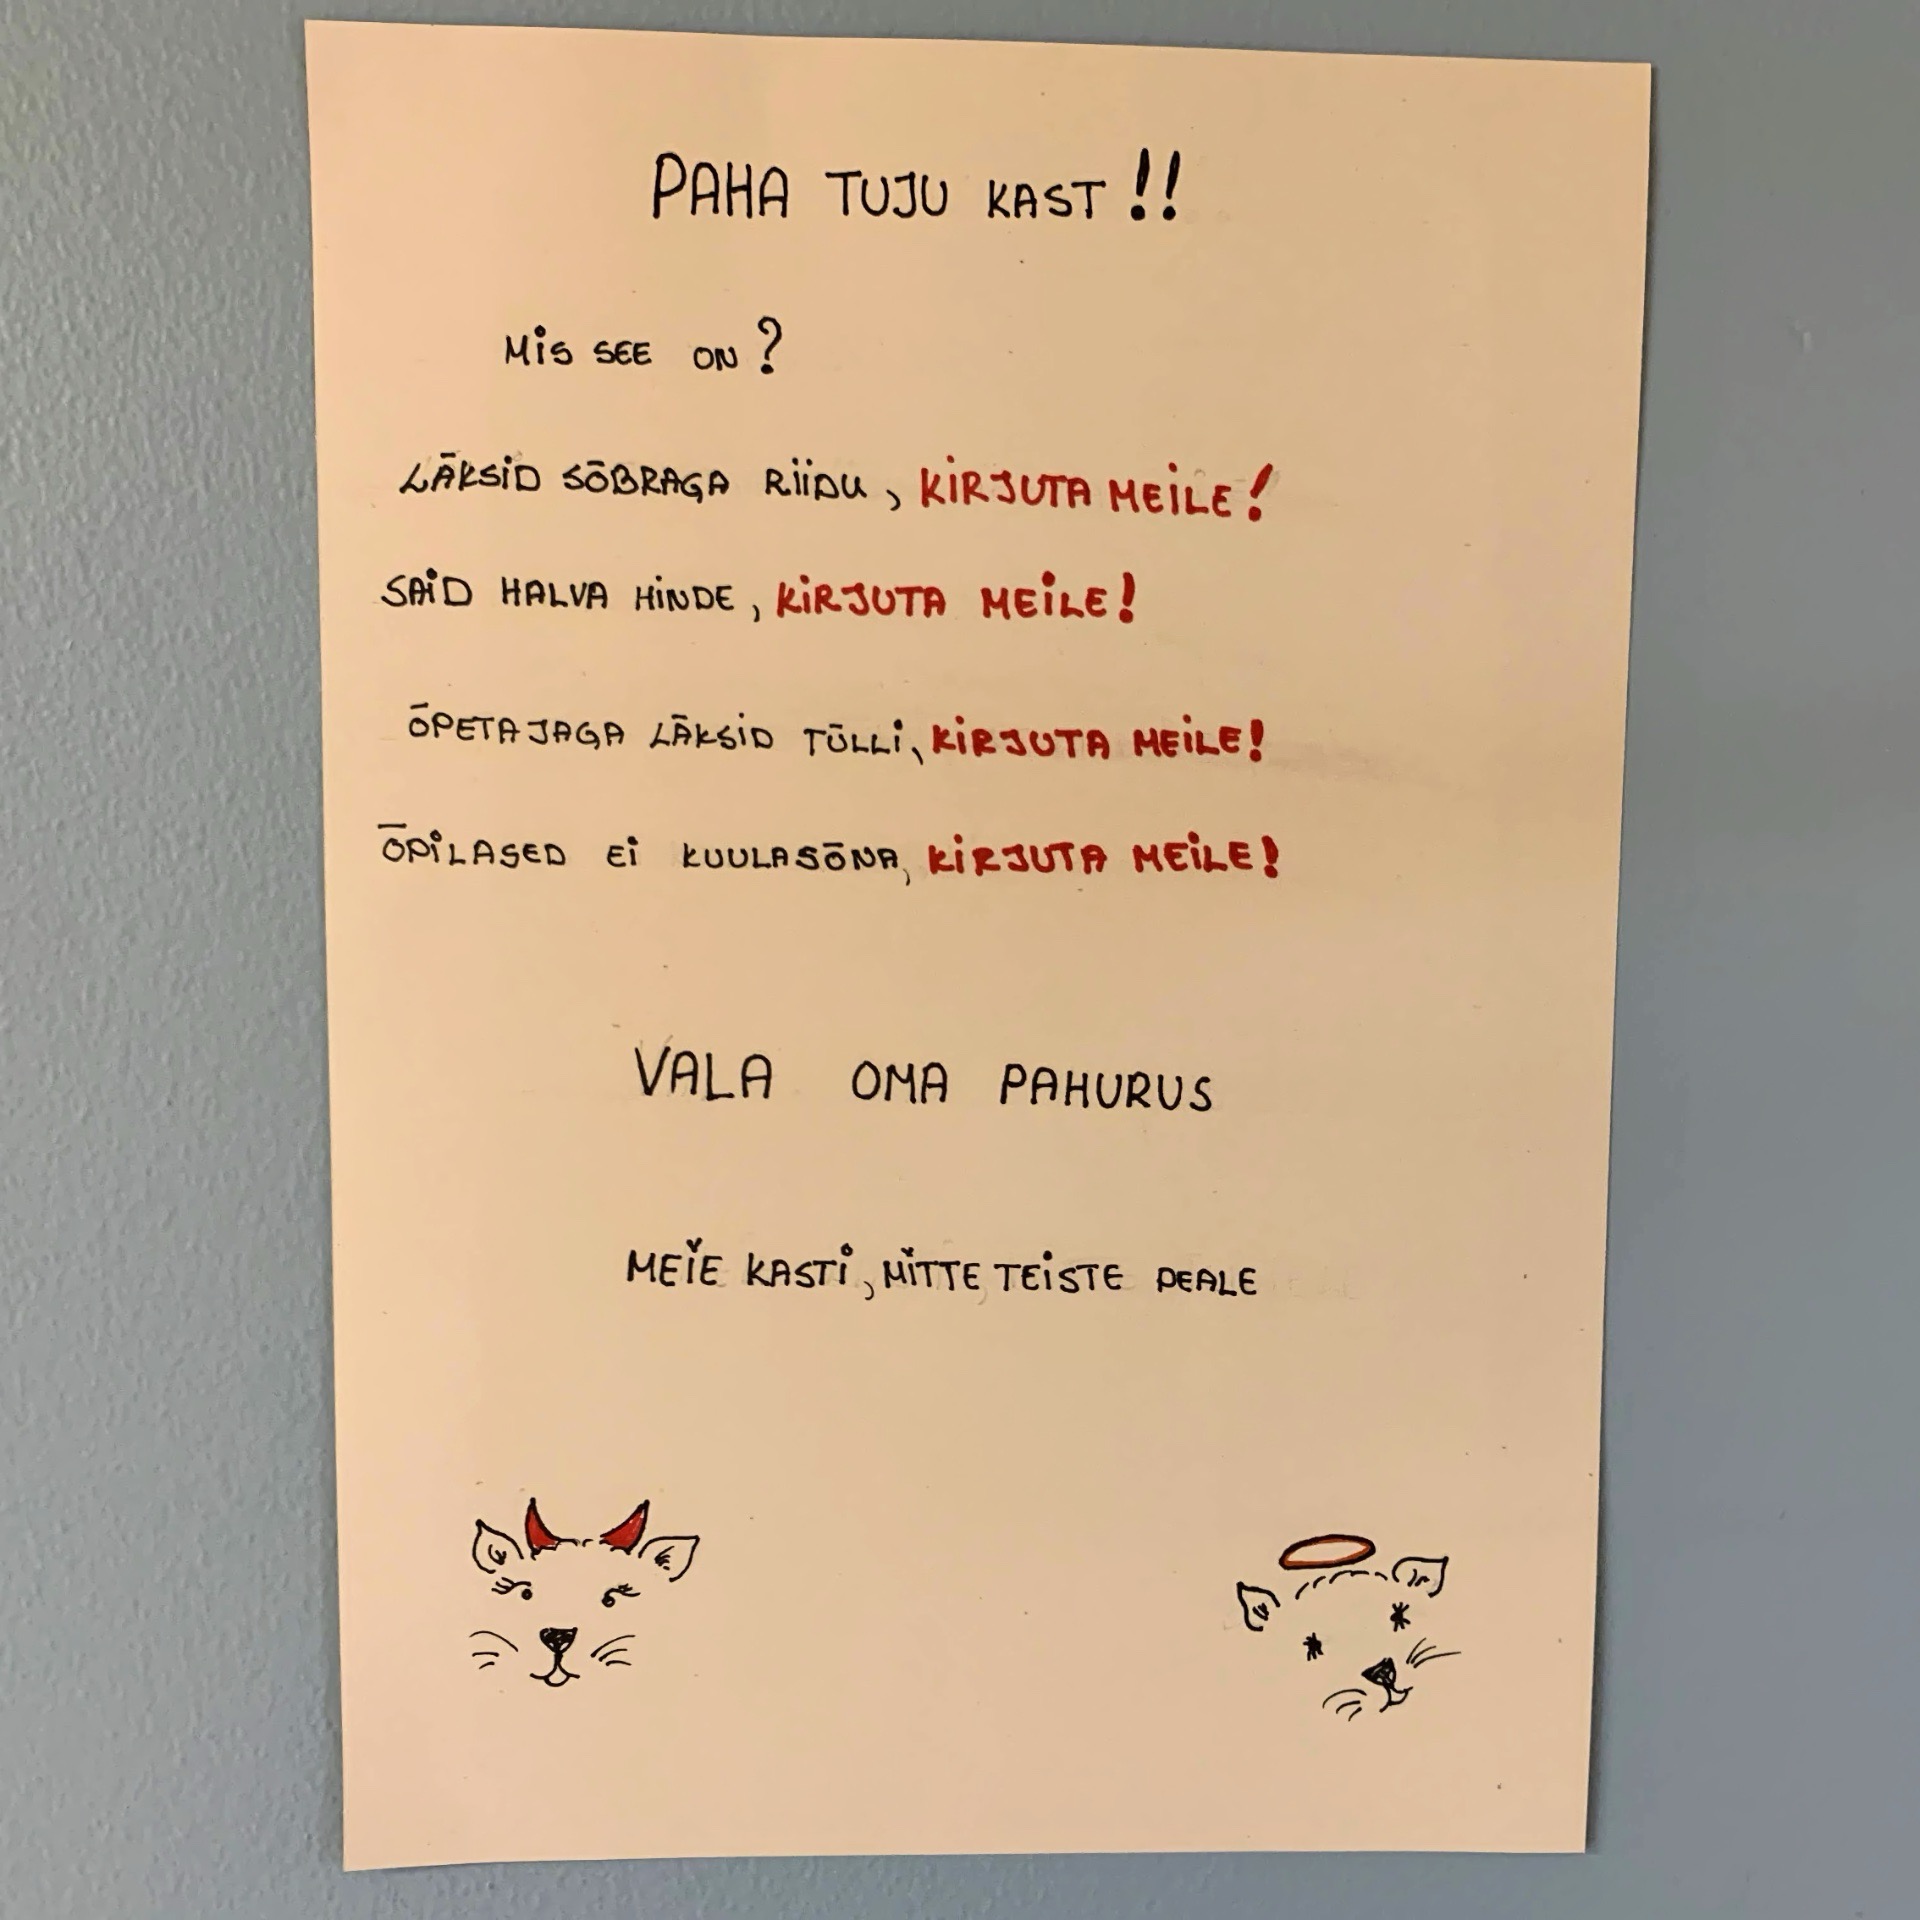 PAHA TUJU KAST!!
MIS SEE ON?
LÄKSID SÕBRAGA RIIDU, KIRJUTA MEILE!
SAID HALVA HINDE, KIRJUTA MEILE!
ÕPETAJAGA LÄKSID TÜLLI, KIRJUTA MEILE!
ÕPILASED EI KUULASÕNA, KIRJUTA MEILE!
VALA OMA PAHURUS
MEIE KASTI, MITTE TEISTE PEALE